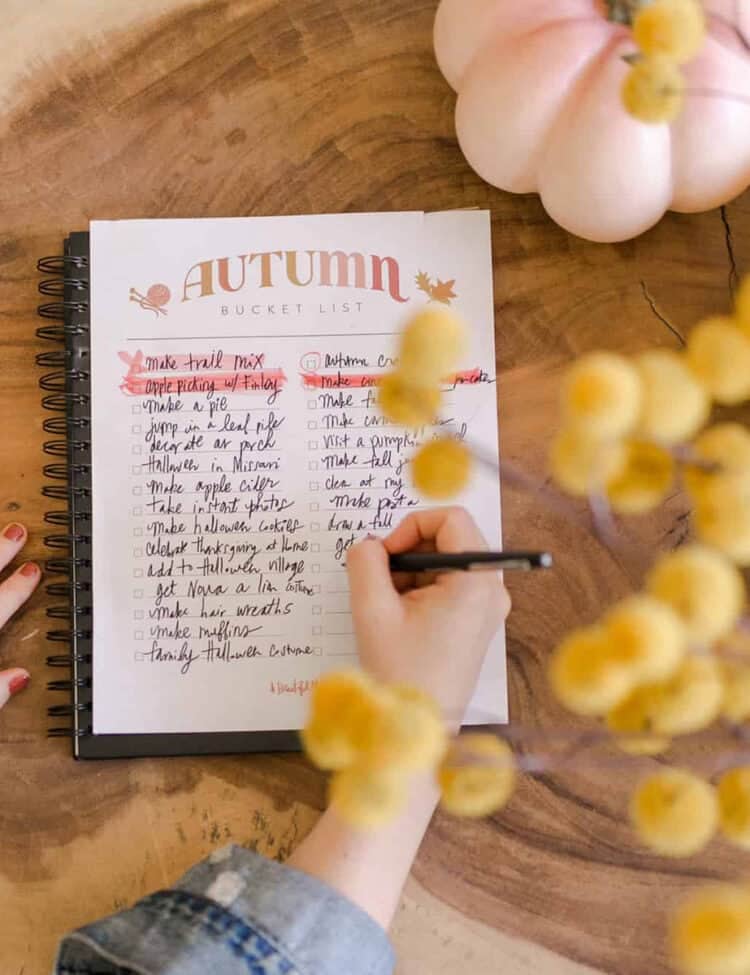 AUTUMN
BUCKET LIST
make trail mix
apple picking w/ Finley
make a pie
jump in a leaf pile
decorate ar porch
Halloween in Missouri
Make apple cider
take instant photos
Make halloween cookies
celebrate thanksgiving at Home
add to Halloween village
get Nova a lion costume
make hair wreaths
make muffins
family Halloween costume
autumn
make
Make
make
visit a pumpkin
make fall
clean at my
make
draw a fall
get
A Beautiful